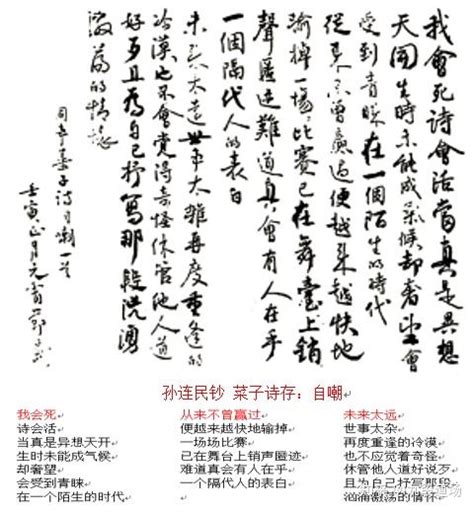 我會死诗會活當真是異想
天開生時未能成氣候却奢望會
受到青睐在一個陌生的時代
從來不曾贏過便越來越快地
输掉一場比賽已在舞臺上銷
聲匿迹難道真會有人在乎
一個隔代人的表白
未来太遠世事太雜再度重逢的
冷漠也不會覺得奇怪休管他人道
好歹且為自己抒寫那段汹湧
激荡的情懷
菜子诗自嘲一首
壬寅正月元宵節
孙连民钞 菜子诗存：自嘲
我会死
诗会活
当真是异想天开
生时未能成气候
却奢望
会受到青睐
在一个陌生的时代
从来不曾赢过
便越来越快地输掉
一场场比赛
已在舞台上销声匿迹
难道真会有人在乎
一个隔代人的表白
未来太远
世事太杂
再度重逢的冷漠
也不应觉着奇怪
休管他人道好说歹
且为自己抒写那段
汹涌激荡的情怀